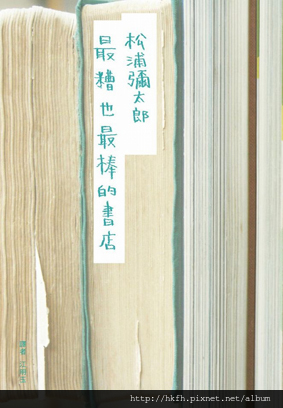 松浦彌太郎
最糟也最棒的書店
譯者 江明玉
http://hkfh.pixnet.net/album